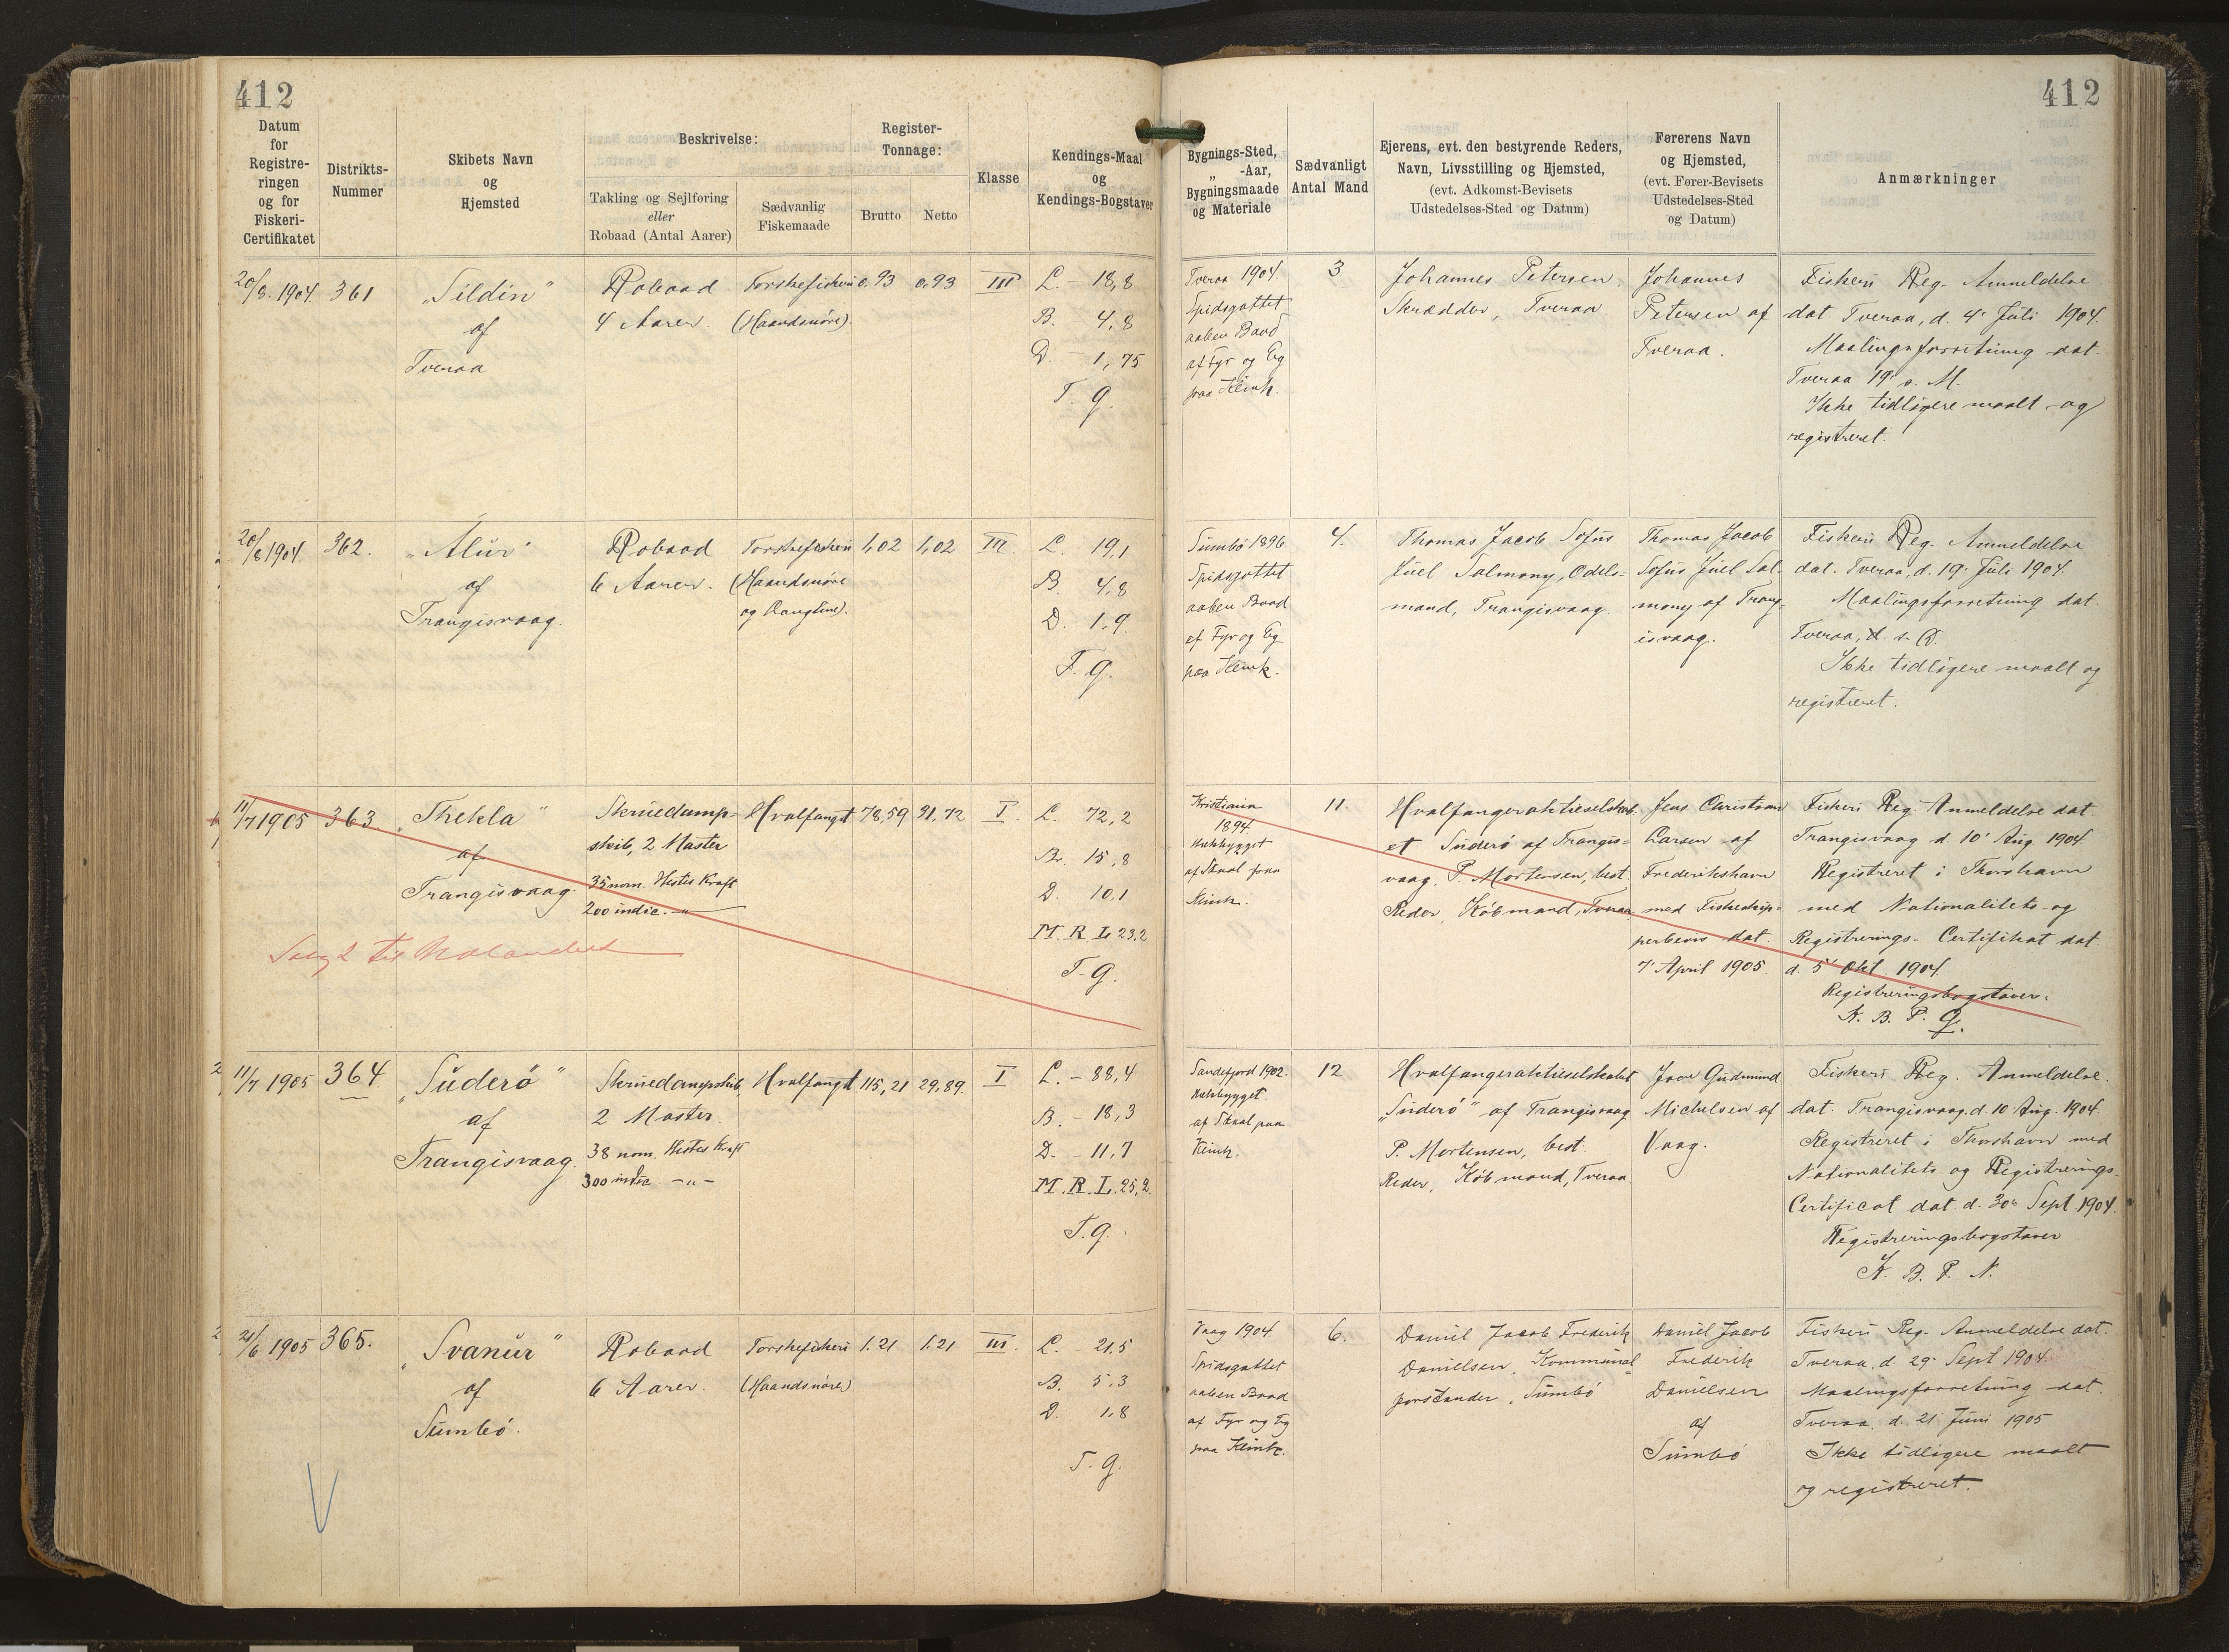 412
412
Datum
for
Registre-
ringen
og for
Fiskeri-
Certifikatet
Distrikts-
Nummer
Skibets Navn
og
Hjemsted
Beskrivelse:
Takling og Sejlføring
eller
Robaad (Antal Aarer)
Sædvanlig
Fiskemaade
Register-
Tonnage:
Brutto
Netto
Klasse
Kendings-Maal
og
Kendings-Bogstaver
Bygnings-Sted,
„ -Aar,
Bygningsmaade
og Materiale
Sædvanligt
Antal Mand
Ejerens, evt. den bestyrende Reders,
Navn, Livsstilling og Hjemsted,
(evt. Adkomst-Bevisets
Udstedelses-Sted og Datum)
Førerens Navn
og Hjemsted,
(evt. Fører-Bevisets
Udstedelses-Sted
og Datum)
Anmærkninger
20/8 1904.
361
„Sildin"
af
Tveraa
Robaad
4 Aarer.
Torskefiskeri
(Haandsnøre).
0,93
0,93
III
L. - 18,8
B. 4,8
D. - 1,75
T. g.
Tveraa 1904.
Spidsgattet
aaben Baad
af Fyr og Eg
paa Klink.
3
Johannes Petersen,
Skrædder, Tveraa
Johannes
Petersen af
Tveraa.
Fiskeri Reg. Anmeldelse
dat. Tveraa, d. 4' Juli 1904.
Maalingsforretning dat.
Tveraa 19' s. M.
Ikke tidligere maalt og
registreret.
20/8 1904.
362.
„Alur"
af
Trangisvaag.
Robaad
6 Aarer.
Torskefiskeri
(Haandsnøre
og Langline).
1,02
1,02
III.
L. 19,1
B. 4,8
D. 1,9
T. g.
Sumbö 1896.
Spidsgattet
aaben Baad
af Fyr og Eg
paa Klink.
4.
Thomas Jacob Sofus
Juel Salmony, Odels-
mand, Trangisvaag.
Thomas Jacob
Sofus Juel Sal-
mony af Trang-
isvaag.
Fiskeri Reg. Anmeldelse
dat. Tveraa, d. 19' Juli 1904.
Maalingsforretning dat.
Tveraa, d. s. D.
Ikke tidligere maalt og
registreret.
11/7 1905
363.
„Thekla"
af
Trangisvaag.
Skruedamp-
skib, 2 Master
35 nom. Hestes Kraft
200 indic. -"-
Hvalfangst
78,59
31,72
I.
L. 72,2
B. 15,8
D. 10,1
M. R. L 23,2
T. g.
Solgt til Udlandet
Kristiania
1894
Kulbygget
af Staal paa
Klink.
11.
Hvalfangeraktieselskab-
et Suderö af Trangis-
vaag, P. Mortensen, best.
Reder, Købmand, Tveraa
Jens Christian
Larsen af
Frederikshavn
med Fiskeskip-
perbevis dat.
7' April 1905.
Fiskeri Reg. Anmeldelse dat.
Trangisvaag d. 10' Aug. 1904.
Registreret i Thorshavn
med Nationalitets- og
Registrerings- Certifikat dat.
d. 5' Okt. 1904.
Registreringsbogstaver.
N. B. P. G.
11/7 1905
364.
„Suderö"
af
Trangisvaag.
Skruedampskib,
2 Master.
38 nom. Hestes Kraft
300 indic. -"-
Hvalfangst
115,21
29,89.
I
L. - 88,4
B. - 18,3
D. - 11,7
M. R. L. 25,2
T. g.
Sandefjord 1902.
Kulbygget
af Staal paa
Klink.
12
Hvalfangeraktieselskabet
„Suderö" af Trangisvaag
P. Mortensen, best.
Reder, Købmand, Tveraa.
Gudmund
Michelsen af
Vaag.
Fiskeri Reg. Anmeldelse.
dat. Trangisvaag. d. 10' Aug. 1904.
Registreret i Thorshavn med
Nationalitets- og Registrerings-
Certificat dat. d. 30' Sept. 1904.
Registreringsbogstaver
N. B. P. N.
21/6 1905
365.
„Svanur"
af
Sumbö.
Robaad
6 Aarer.
Torskefiskeri
(Haandsnøre)
1.21
1.21
III.
L. - 21.5
B. 5.3
D. 1.8
T. g.
Vaag 1904.
Spidsgattet
aaben Baad
af Fyr og Eg
paa Klink.
6.
Daniel Jacob Frederik
Danielsen, Kommunal-
forstander, Sumbö
Daniel Jacob
Frederik
Danielsen
af
Sumbö
Fiskeri Reg. Anmeldelse dat.
Tveraa, d. 29' Sept 1904.
Maalingsforretning dat.
Tveraa d. 21' Juni 1905
Ikke tidligere maalt
og registreret.